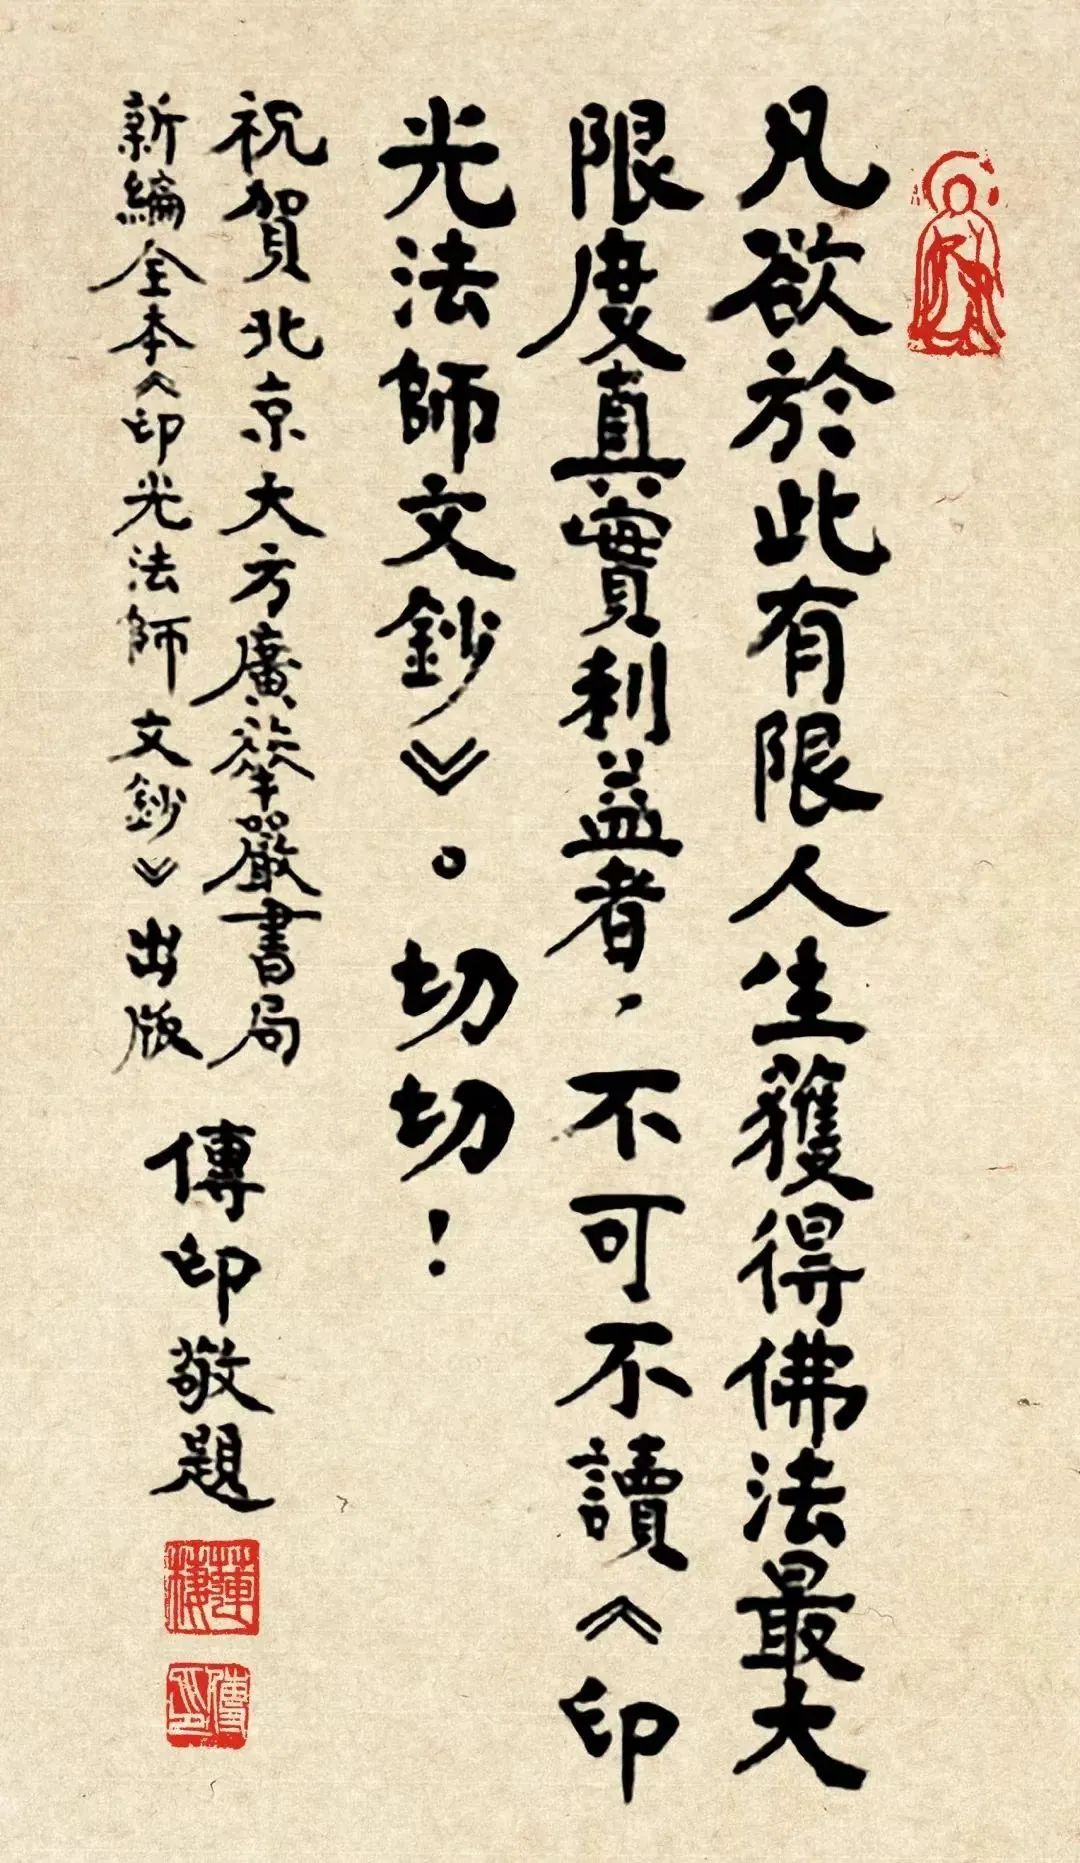 凡欲於此有限人生獲得佛法最大
限度真實利益者，不可不讀《印
光法師文鈔》。切切！
祝賀北京大方廣華嚴書局
新編全本《印光法師文鈔》出版
傳印敬題
蓮棲
傳印